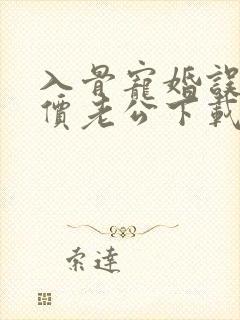 入骨寵婚誤
價老公下載
索達